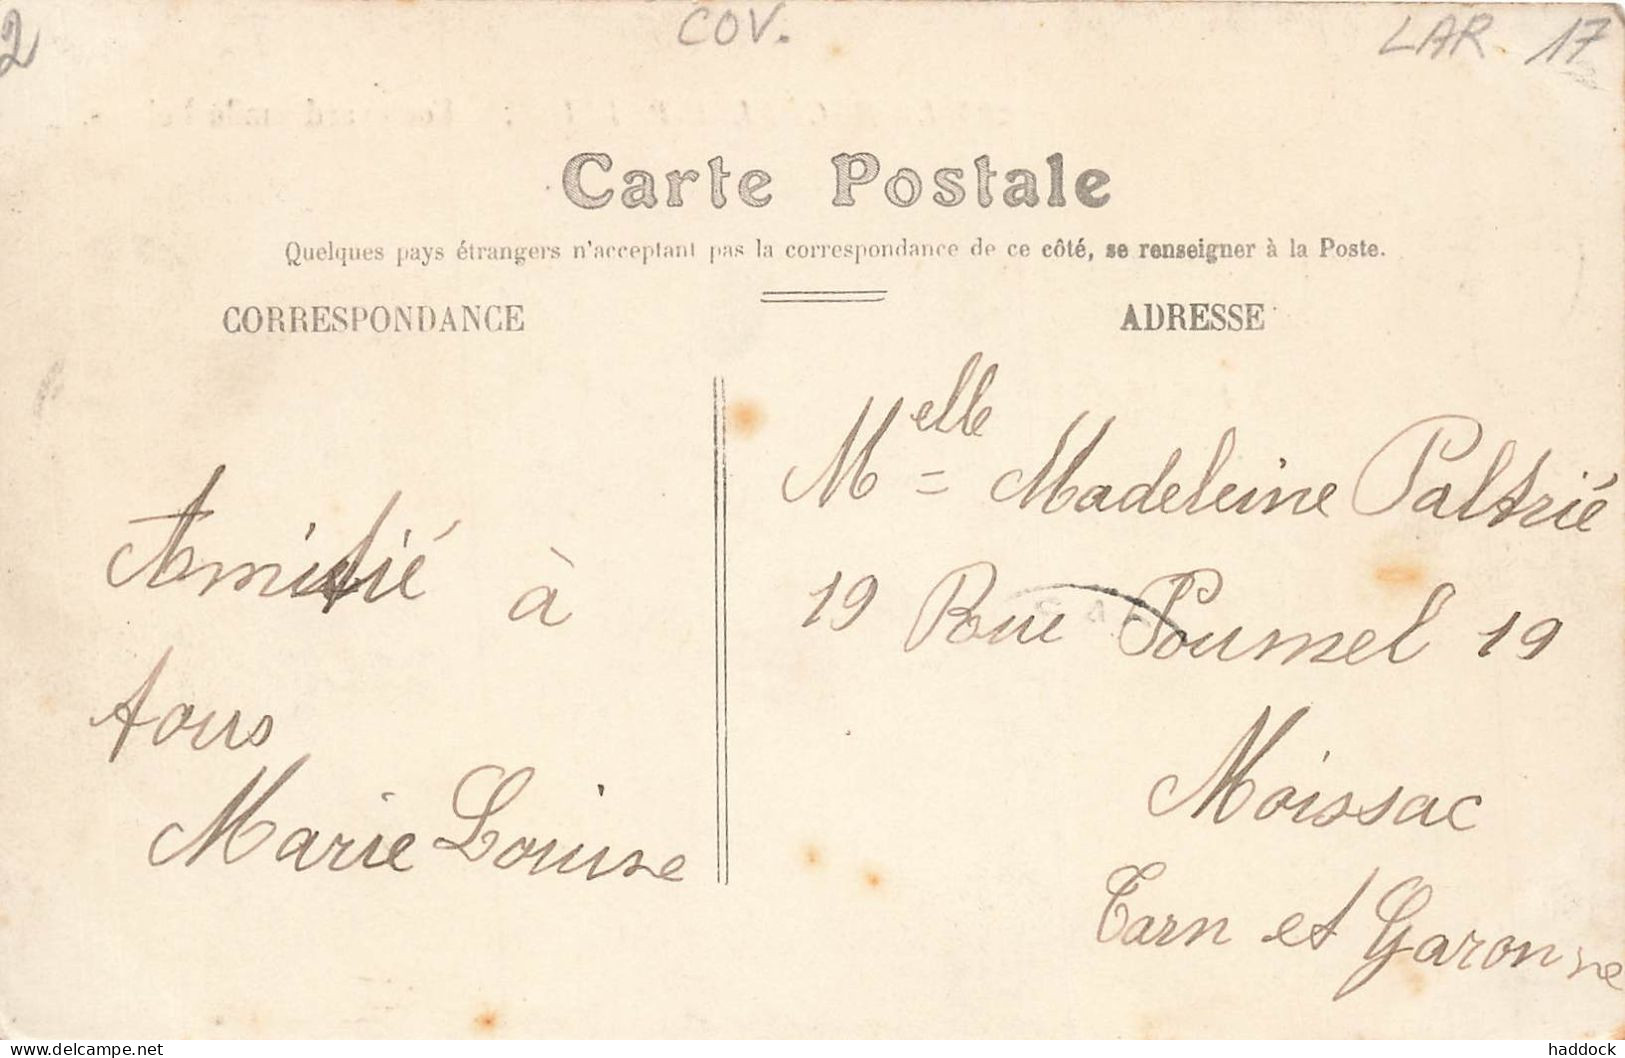 2
COV.
LAR 17
Carte Postale
Quelques pays étrangers n'acceptant pas la correspondance de ce côté, se renseigner à la Poste.
CORRESPONDANCE
ADRESSE
Amitié à
tous
Marie Louise
Melle Madeleine Paltrié
19 Rue Poumel 19
Moissac
Tarn et Garonne
© delcampe.net
haddock